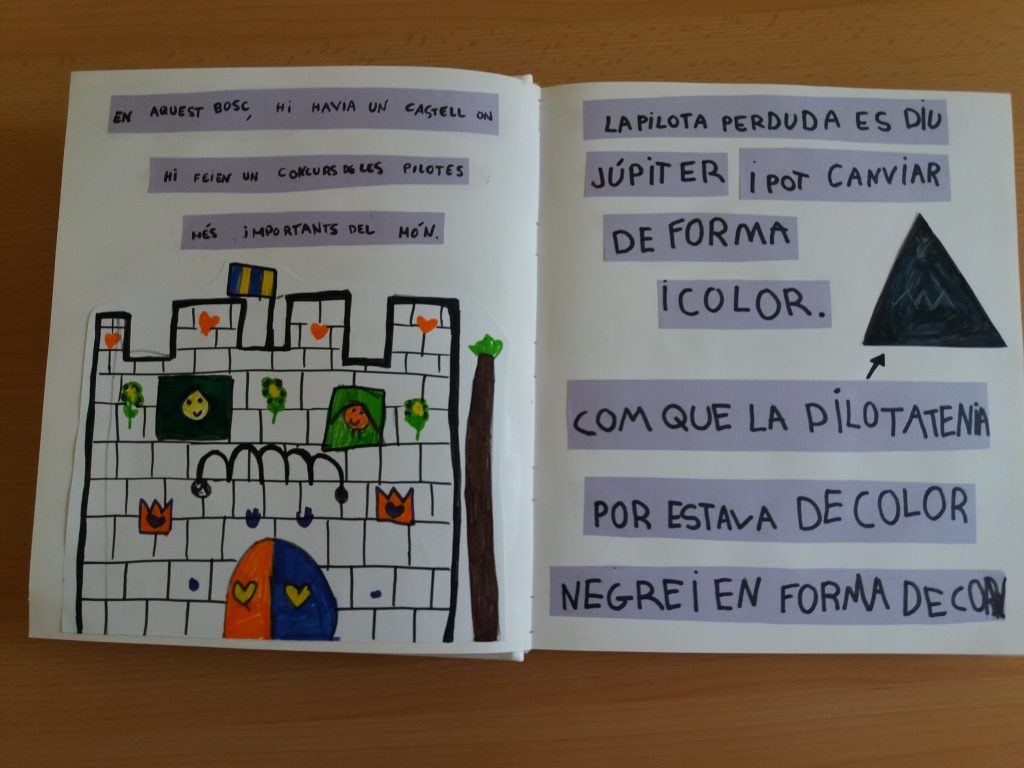 EN AQUEST BOSC, HI HAVIA UN CASTELL ON
HI FEIEN UN CONCURS DE LES PILOTES
MÉS IMPORTANTS DEL MÓN.
LA PILOTA PERDUDA ES DIU
JÚPITER I POT CANVIAR
DE FORMA
I COLOR.
COM QUE LA PILOTA TENIA
POR ESTAVA DE COLOR
NEGRE I EN FORMA DE CON